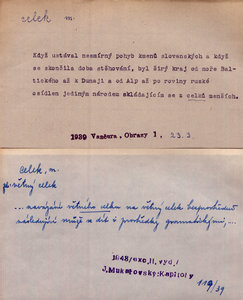 celek m.
Když ustával nesmírný pohyb kmenů slovanských a když
se skončila doba stěhování, byl širý kraj od moře Bal-
tického až k Dunaji a od Alp až po roviny ruské
osídlen jediným národem skládajícím se z celků menších.
1939 Vančura, Obrazy 1, 23.3
celek, m.
větný celek
... navázání větného celku na větný celek bezprostředně
následující může se díti prostředky gramatickými, ...
1948/exc. II. vyd./
J. Mukařovský: Kapitoly